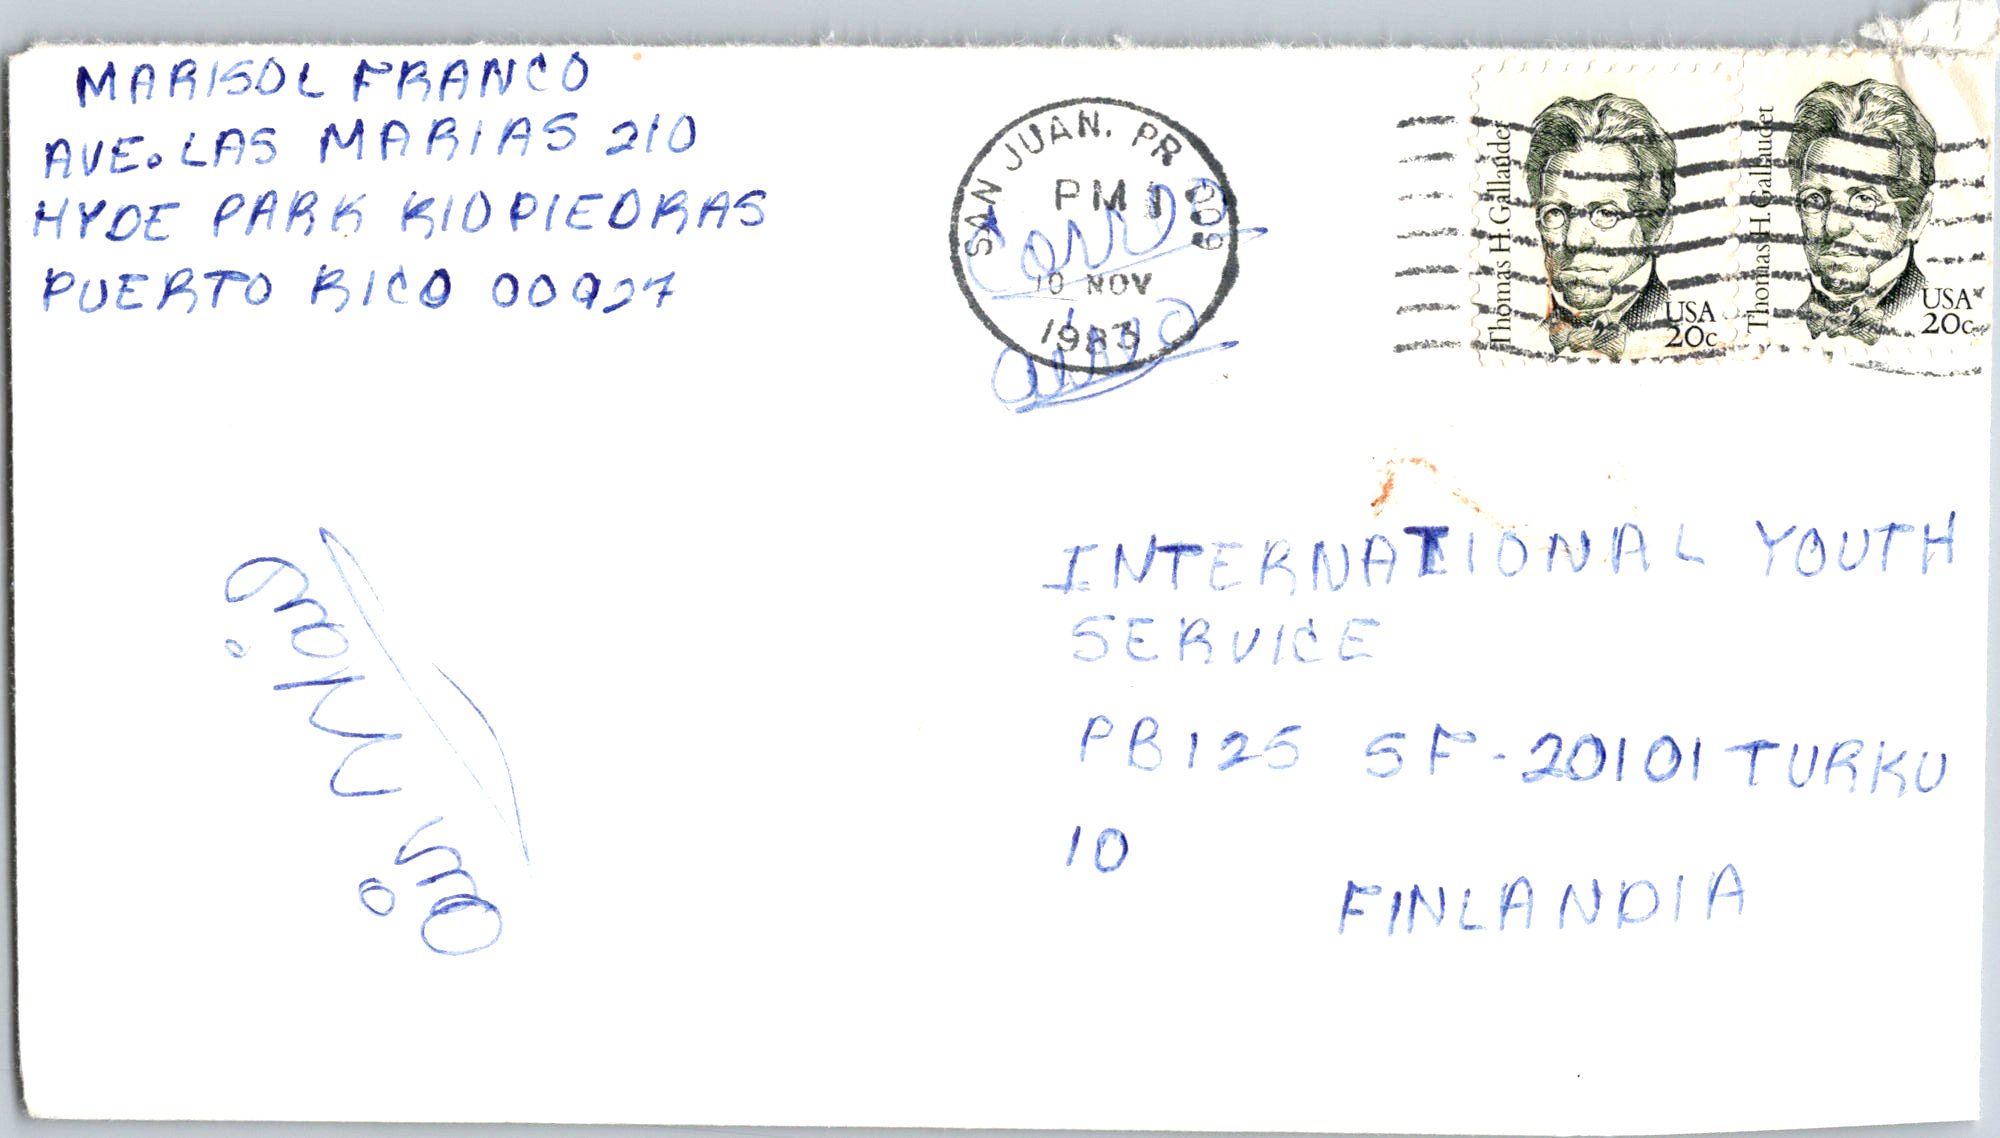 MARISOL FRANCO
AVE. LAS MARIAS 210
HYDE PARK RIO PIEDRAS
PUERTO RICO 00927
SAN JUAN, PR 009
PM
10 NOV
1983
Correo
aereo
Thomas H. Gallaudet
USA
20c
Thomas H. Gallaudet
USA
20c
INTERNATIONAL YOUTH
SERVICE
PB 125 SF-20101 TURKU
10
FINLANDIA